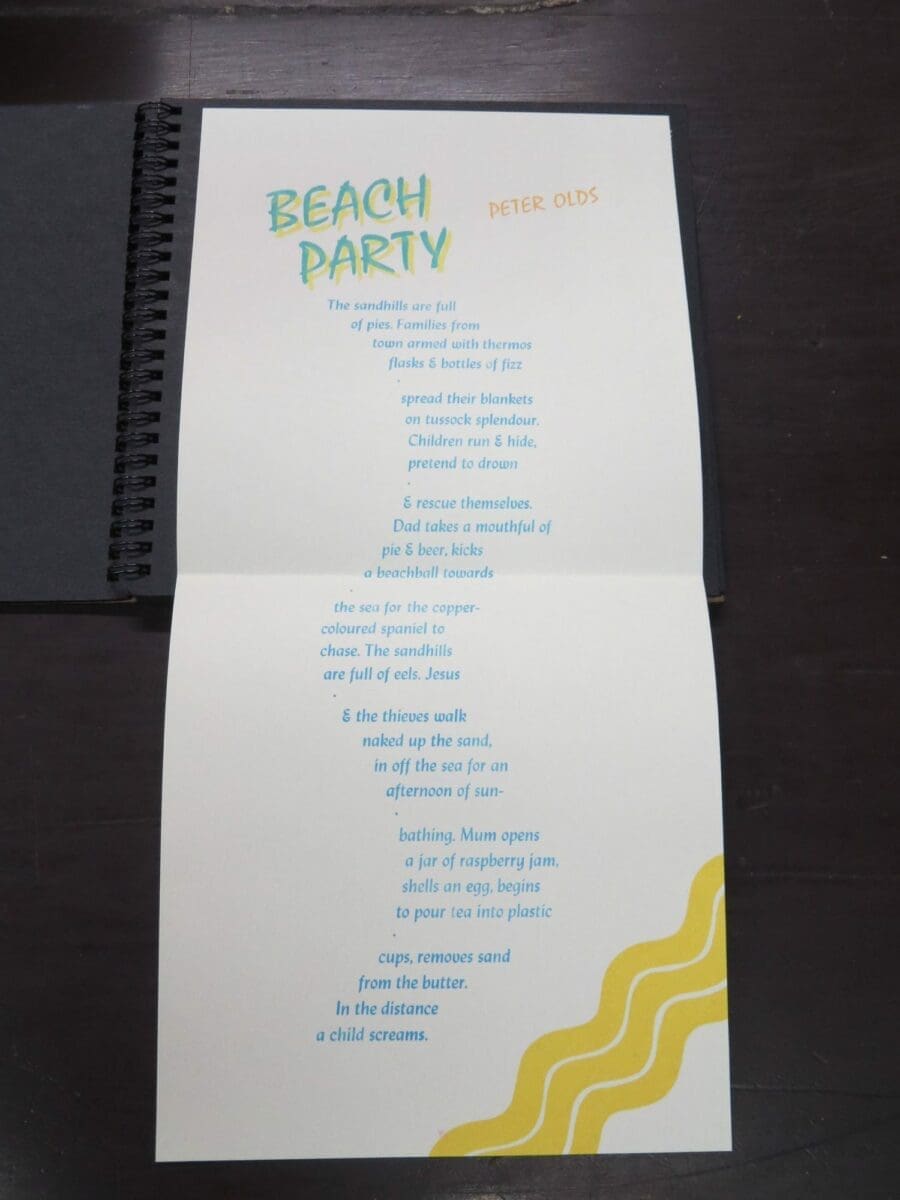 BEACH
PARTY
PETER OLDS
The sandhills are full
of pies. Families from
town armed with thermos
flasks & bottles of fizz
spread their blankets
on tussock splendour.
Children run & hide,
pretend to drown
& rescue themselves.
Dad takes a mouthful of
pie & beer, kicks
a beachball towards
the sea for the copper-
coloured spaniel to
chase. The sandhills
are full of eels. Jesus
& the thieves walk
naked up the sand,
in off the sea for an
afternoon of sun-
bathing. Mum opens
a jar of raspberry jam,
shells an egg, begins
to pour tea into plastic
cups, removes sand
from the butter.
In the distance
a child screams.